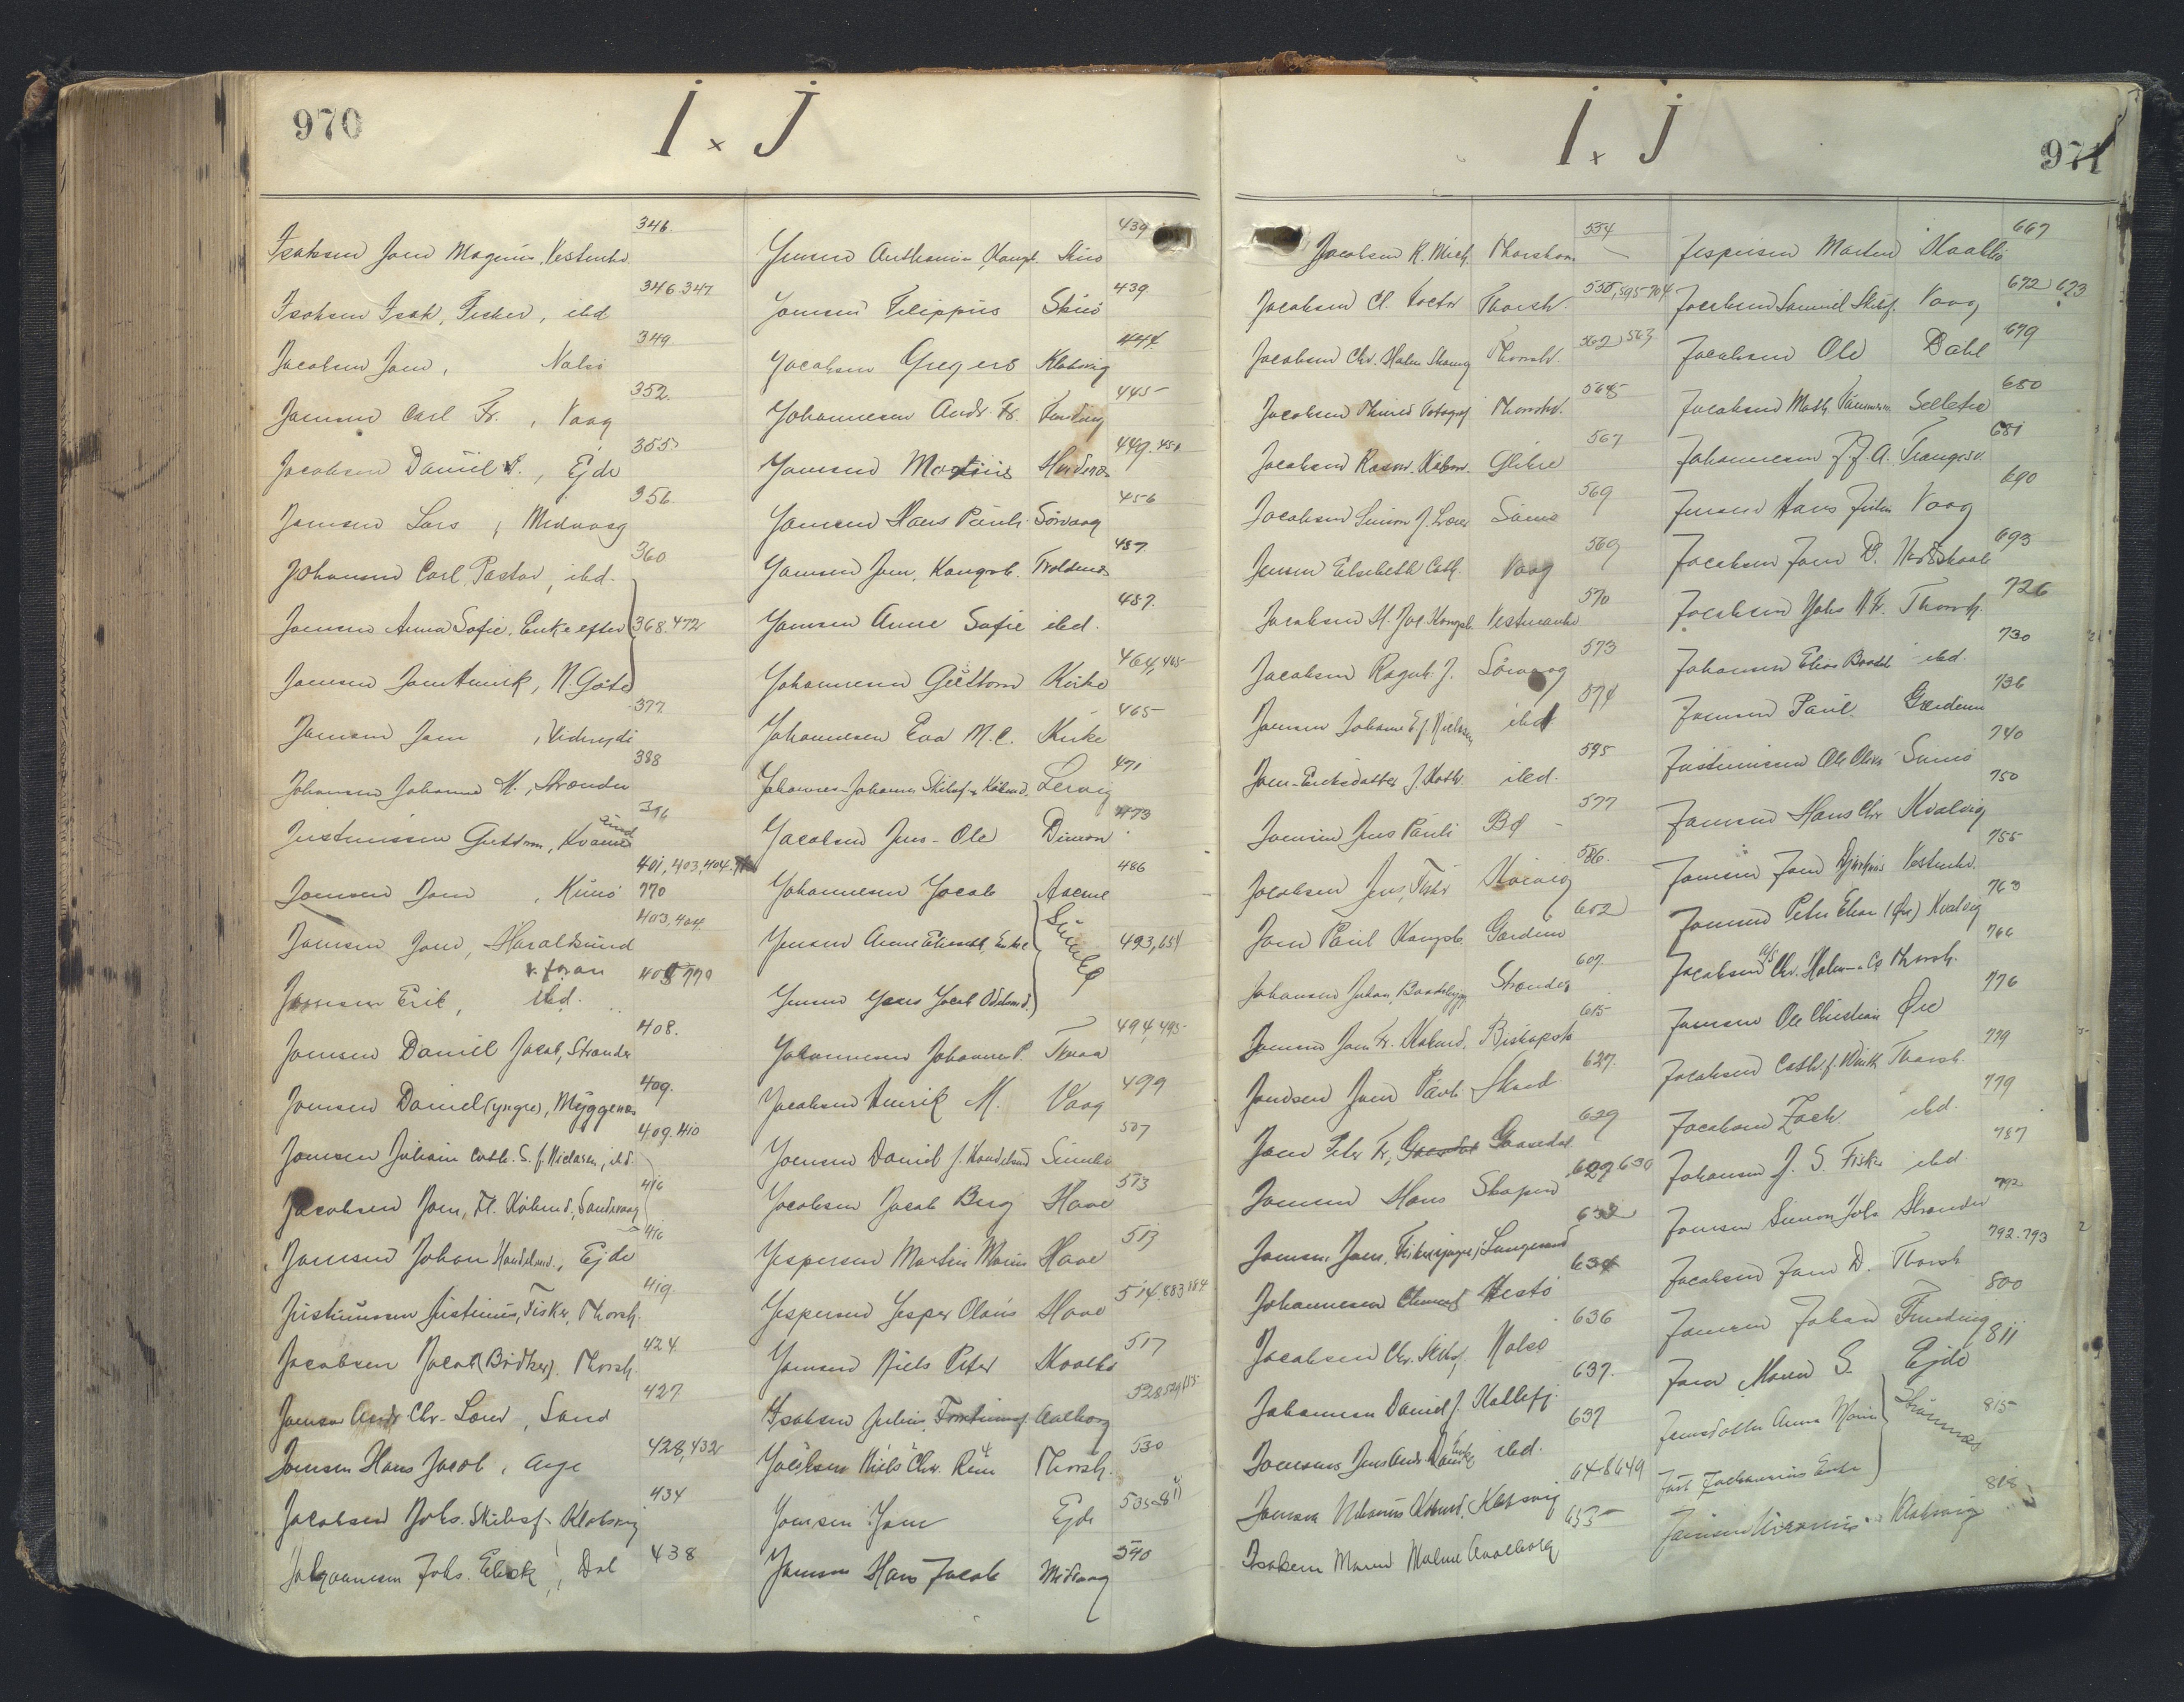 970
I × J
Isaksen Joen Magnus, Vestmhv. 346.
Isaksen Isak, Fisker, ibd 346.347
Jacobsen Joen, Nolsö 349.
Joensen Carl Fr., Vaag 352.
Jacobsen Daniel, Ejde 355
Joensen Lars, Midvaag 356.
Johansen Carl, Pastor, ibd. 360
Joensen Anna Sofie, Enke efter 368.472
Joensen Joen Henrik, N. Göte
Joensen Joen, Viderejdi 377.
Johansen Johanna M., Strænder 388
Justinussen Guttorm, Kvannesund 396
Joensen Joen, Kunö 401, 403, 404. 770
Joensen Joen, Haraldsund 403, 404
v. foran
Joensen Erik, ibd. 405 770
Joensen Daniel Jacob, Strænder 408.
Joensen Daniel (yngre), Myggenæs 409.
Joensen Juliane Cath. S. f. Niclasen, ibd. 409.410
Jacobsen Joen, Fl. Købmd, Sandevaag 416
Joensen Johan Handelsmd., Ejde 416
Justinussen Justinus, Fisker, Thorsh. 419.
Jacobsen Jacob (Bödker). Thorsh. 424
Joensen Andr. Chr. Lærer, Sand 427
Joensen Hans Jacob, Ange 428,432
Jacobsen Johs. Skibsf. Klaksvig 434
Johannesen Johs. Elick, Dal 438
Jensen Anthonius, Kongsb. Skuö 439
Joensen Filippus Skuö 439
Jacobsen Gregers Klaksvig 444
Johannesen Andr. Fr. Funding 445
Joensen Martius Husum 449.451
Joensen Hans Pauli Sörvaag 456
Joensen Joen, Kongsb. Troldenæs 457.
Joensen Anne Sofie ibd. 457.
Johannesen Guttorm Kirke 464,465
Johannesen Eva M. C. Kirke 465
Johannes-Johannes Skibsf. & Købmd. Lervig 471
Jacobsen Jens-Ole Dimon 473
Johannesen Jacob 486
Jensen Anne Elisabeth, Enke Sumbö 493,654
Jensen Jens Jacob Odelsmd.
Johannesen Johannes P. Tvaa 494,495
Jacobsen Henrik M. Vaag 499
Joensen Daniel J. Handelsmd Sumbö 507
Jacobsen Jacob Berg Hove 513
Jespersen Martin Marius Hove 513
Jespersen Jesper Olaus Hove 514.883 884
Joensen Niels Peter Kvalbö 517
Isaksen Julius, Aalborg 528
Jacobsen Niels Chr. Thorsh. 530
Joensen Joen Ejde 535 811
Joensen Hans Jacob Midvaag 540
971
I × J
Jacobsen R. Mich. Thorshavn 554
Jacobsen Cl. Factor Thorsh. 558, 595 704
Jacobsen Chr. Holm Skomg Thorsh. 562 563
Jacobsen Thinus Fotograf Thorsh. 565
Jacobsen Rasm. Købm. Glibre 567
Jacobsen Simon J. Lærer Sumö 569
Jensen Elsebeth Cath. Vaag 569
Jacobsen H. Joe. Kongsb. Vestmanhv. 570
Jacobsen Ragnh. J. Sörvaag 573
Joensen Johanne E. f. Nielsen ibd 574
Joen-Eriksdatter J. Kath. ibd. 575
Joensen Jens Pauli Bö 577
Jacobsen Jens, Fisker 586.
Joen Paul Kongsb. Gærdum 602
Johansen Johan, Baadebygg Strænder 607.
Joensen Joen Fr. Købmd. Biskopstö 615
Joensen Joen Pauli Sund. 627.
Joen Peter Fr., Gaasedal 629
Joensen Hans Skopun 629 630
Joensen Joen, Fisker (yngre), Langesand 632
Johannesen Clement Hestö 634
Jacobsen Chr. Skibsf. Nolsö 636
Johannesen Daniel J. Kollefj. 637.
Joensens Jens Andr. Dan. Enke ibd. 637
Joensen Købmd. Klaksvig 648 649
Isaksen Maren Malene Qvalborg 653
Jespersen Morten Kvalbö 667
Jacobsen Samuel Skibsf. Vaag 672 673
Jacobsen Ole Dahl 679
Jacobsen Math. Tømmerm. Selletræ 680
Johannesen J. J. A. Trangisv. 681
Jensen Hans Julius Vaag 690
Jacobsen Joen D. Nordskaale 693
Jacobsen Johs N. Fr. Thorsh. 726
Johansen Elias Baadsb ibd. 730
Joensen Paul Gærdum 736
Justinussen Ole Oliver Sumö 740
Joensen Hans Chr Kvalvig 750
Joensen Joen Djurhuus Vestmhv. 755
Joensen Peter Elias (Øre) Kvalvig 763
Jacobsen A/S Chr. Holm & Co Thorsh. 766
Joensen Ole Christian Øre 776
Jacobsen Cath. f. Winth. Thorsh. 779
Jacobsen Zach. ibd. 779
Johansen J. S. Fisker ibd. 787
Joensen Simon Johs Strænder 792
Jacobsen Joen D. Thorsh 792.793
Joensen Johan Funding 800
Joen Maren S. Ejde 811
Jensdatter Anna Maria Strømnæs 815
Just Zachariasens Enke
Joensen Klaksvig 818